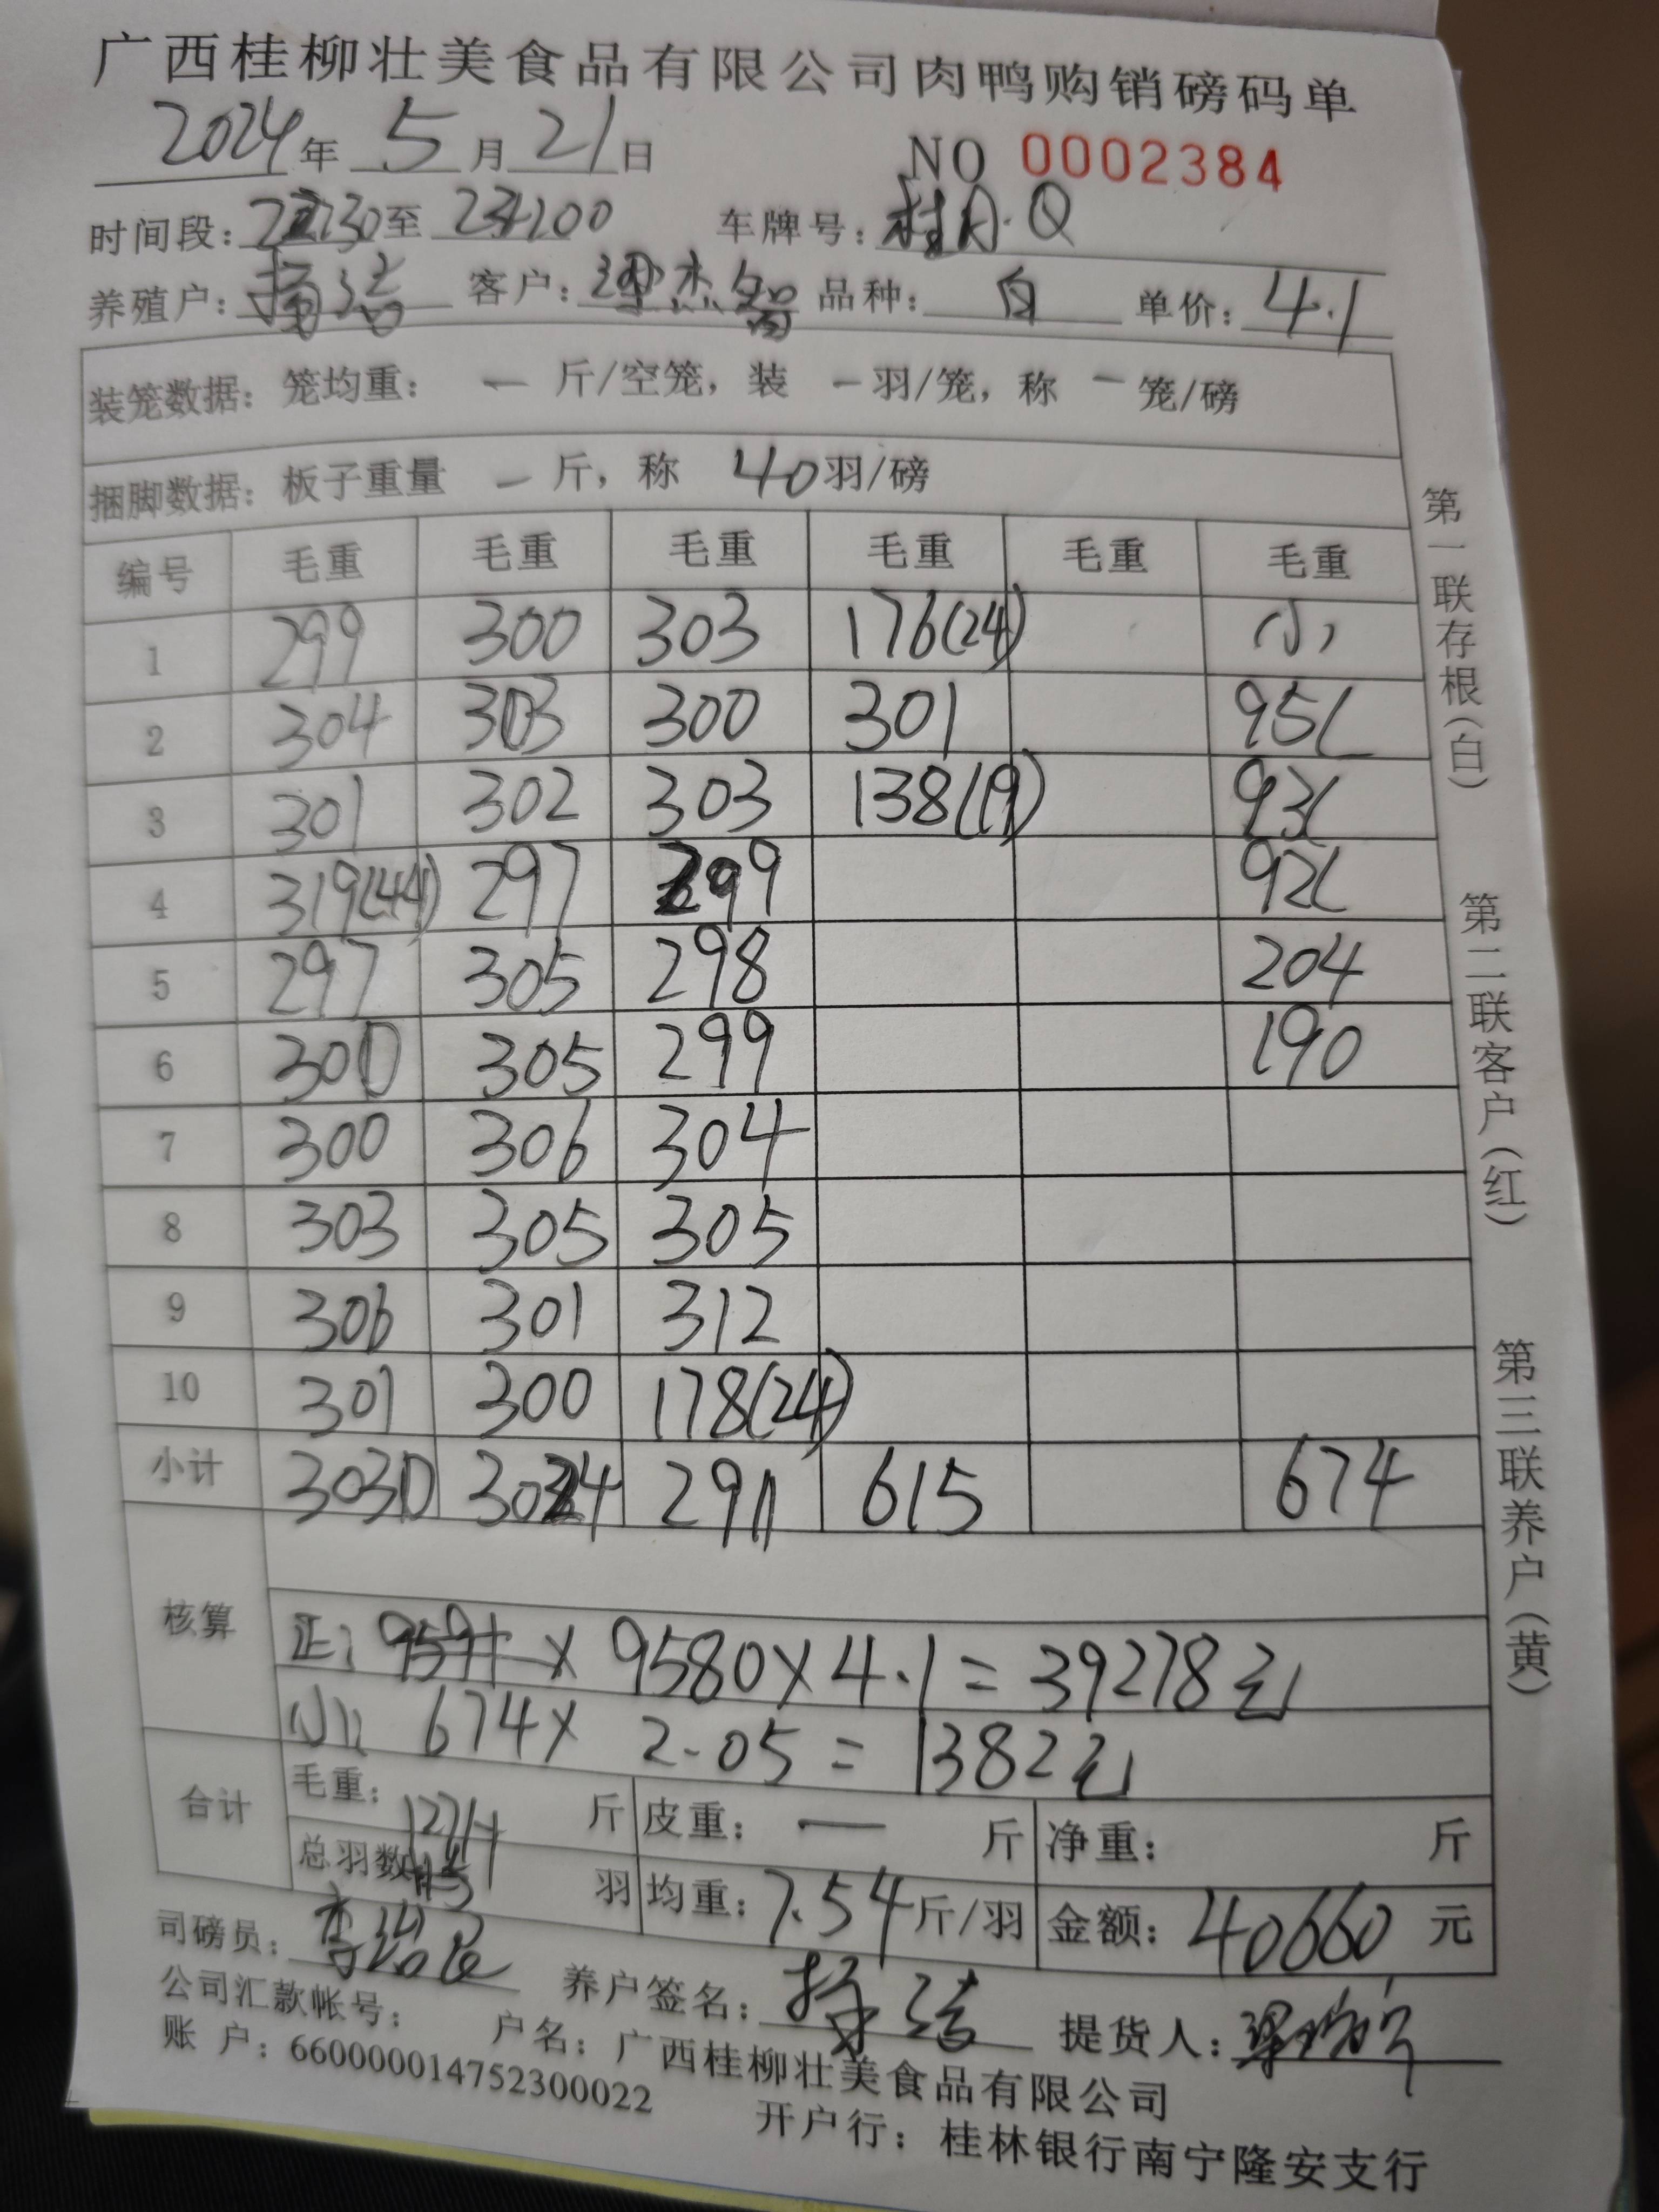 广西桂柳壮美食品有限公司肉鸭购销磅码单
2024年 5月21日 NO 0002384
时间段: 至 车牌号:桂A·Q
养殖户: 客户: 品种: 白 单价: 4.1
装笼数据: 笼均重: — 斤/空笼, 装 —羽/笼, 称 —笼/磅
捆脚数据: 板子重量 — 斤, 称 40羽/磅
编号 毛重 毛重 毛重 毛重 毛重 毛重
1 299 300 303 176(24) 小
2 304 303 300 301 95(
3 301 302 303 138(19) 93(
4 319(44) 297 299 92(
5 297 305 298 204
6 300 305 299 190
7 300 306 304
8 303 305 305
9 306 301 312
10 301 300 178(24)
小计 3030 3024 2911 615 674
核算
正: 9580×4.1=39278元
小: 674× 2.05=1382元
合计 毛重: 斤 皮重: — 斤 净重: 斤
总羽数: 羽 均重: 7.54斤/羽 金额: 40660 元
司磅员: 养户签名: 提货人:
公司汇款帐号: 户名: 广西桂柳壮美食品有限公司
账 户: 660000014752300022 开户行: 桂林银行南宁隆安支行
第一联存根(白) 第二联客户(红) 第三联养户(黄)